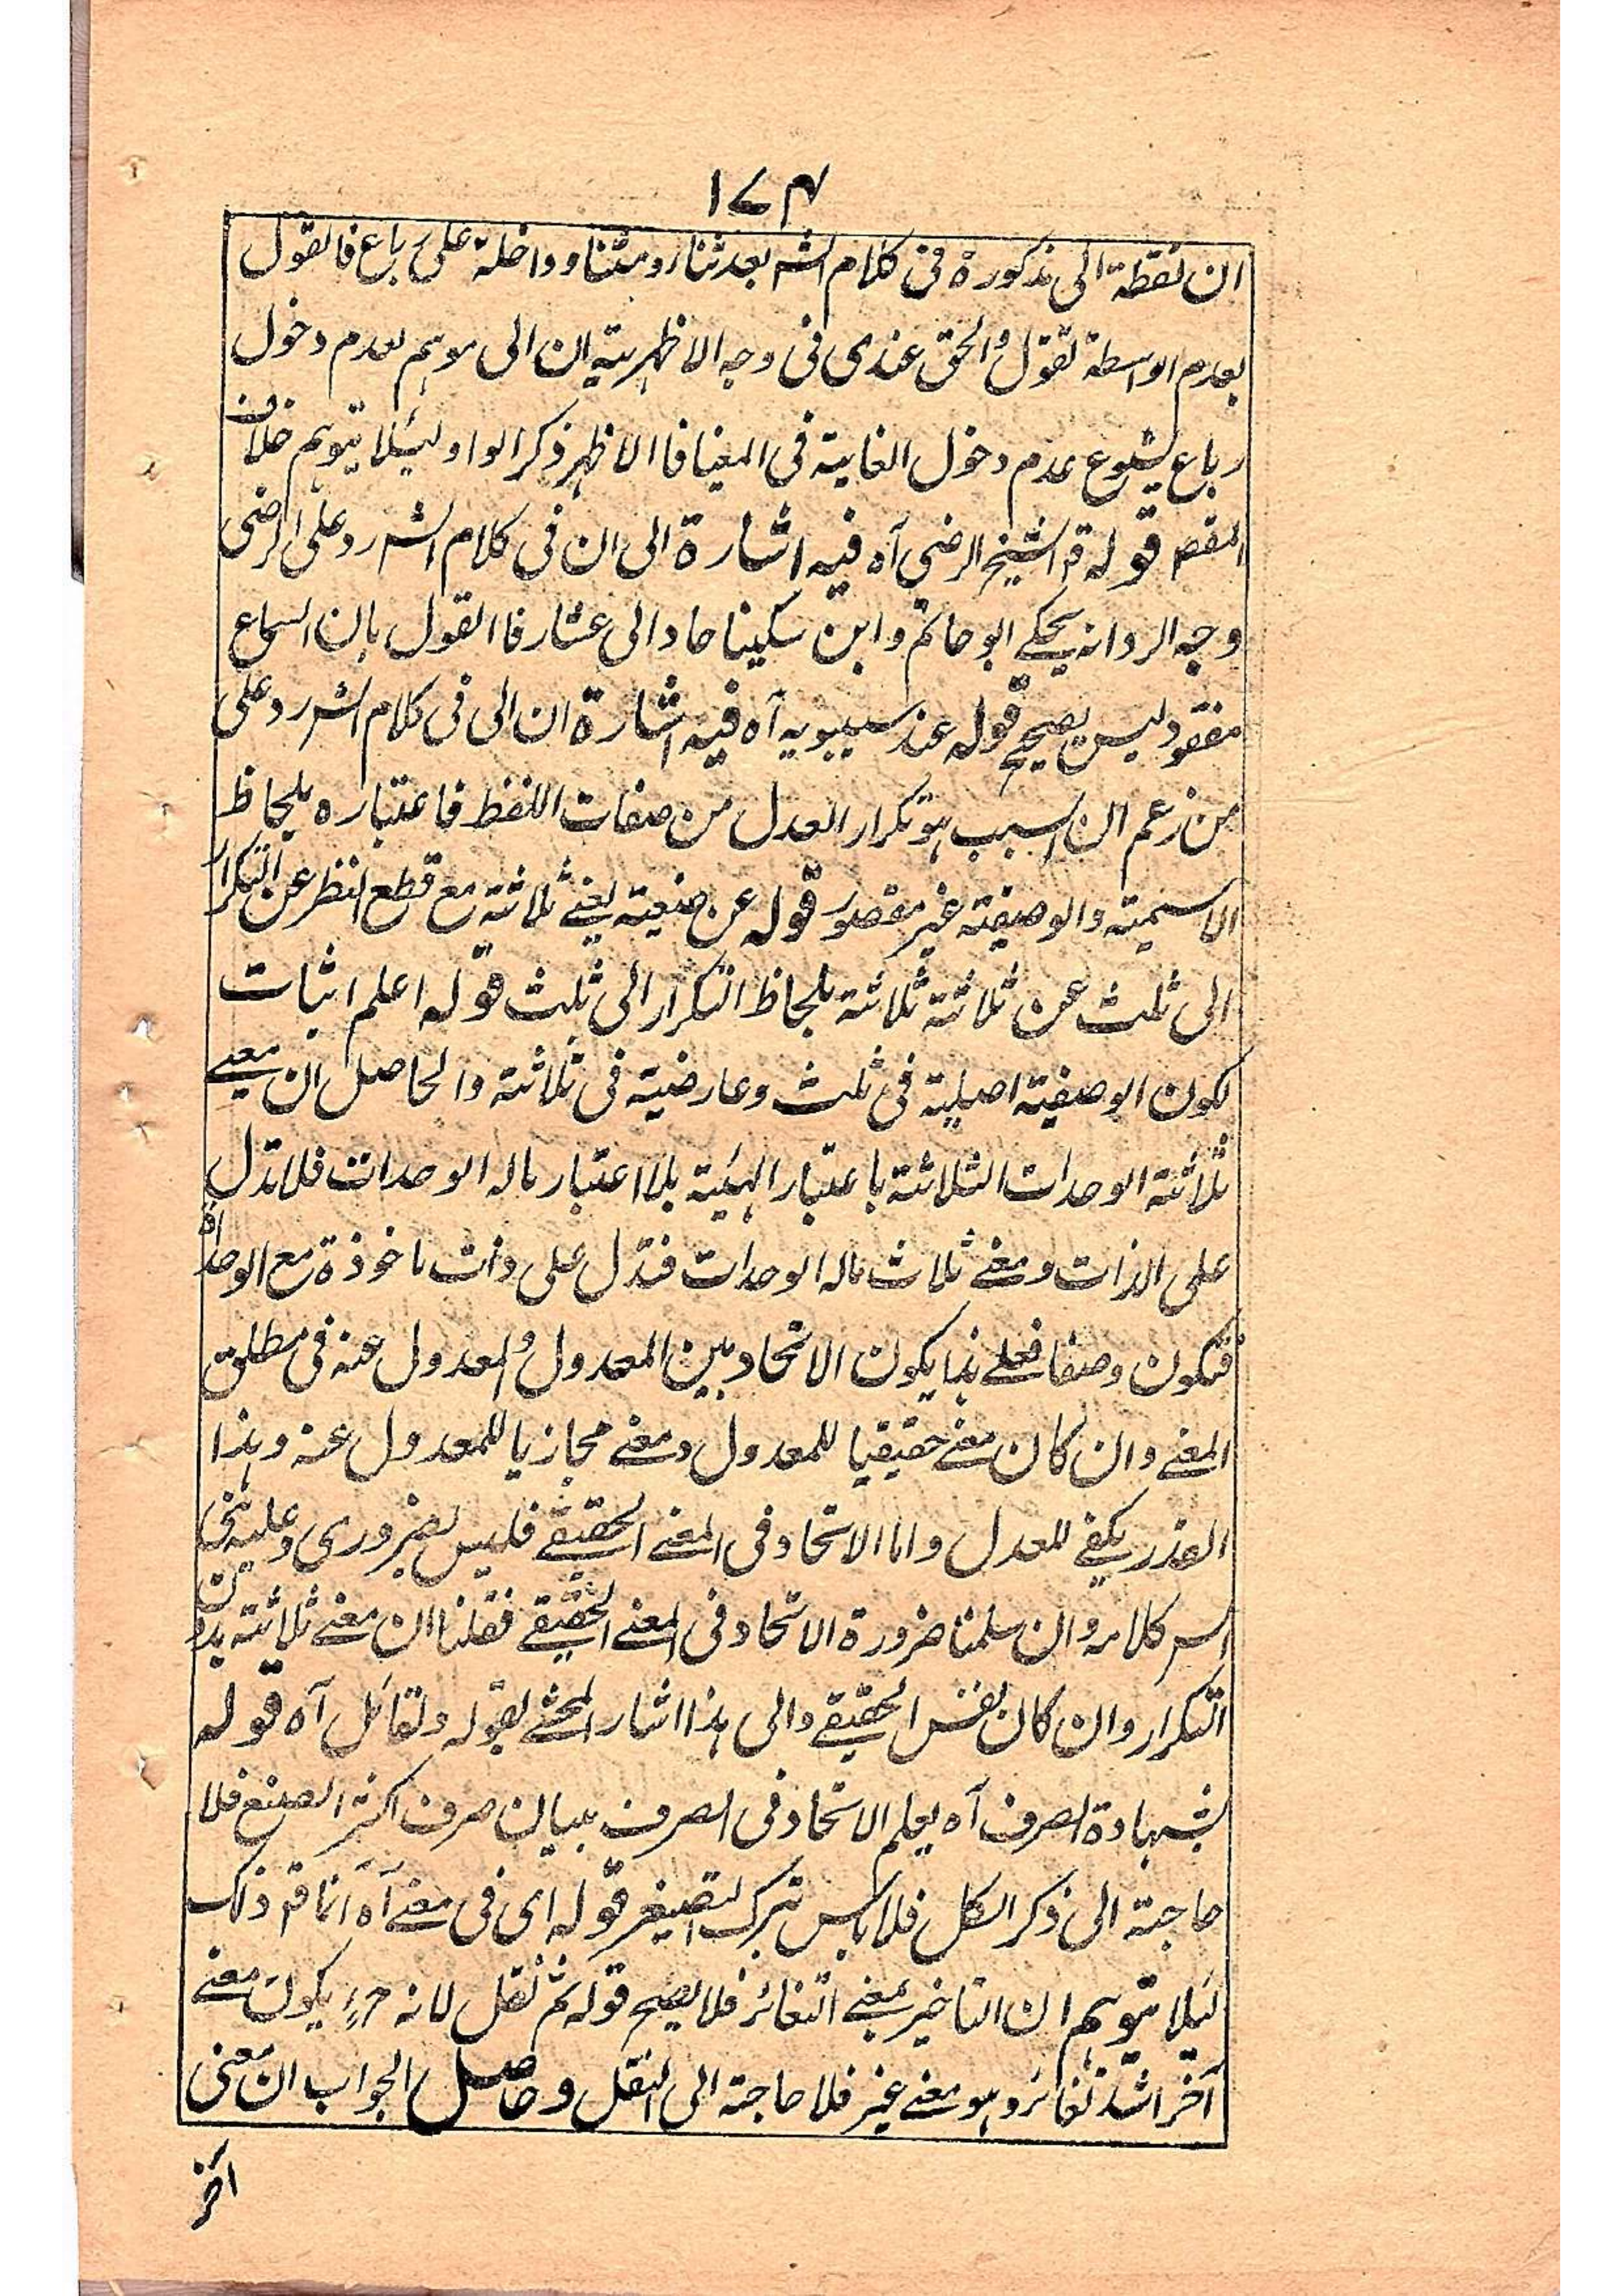 ۱۷۴
ان لفظة الى مذكورة فى كلام الشه بعد ثناء ومثنا وداخلة على رباع فالقول
بعدم الواسطة تقول والحق عندى فى وجه الاظهرية ان الى موہم بعدم دخول
رباع لشيوع عدم دخول الغاية فى المغيا فاالاظہر ذكر الواو لئيلا يتوہم خلاف
المقص قوله قہ الشيخ الرضى آه فيه اشارة الى ان فى كلام الشہ رد على الرضى
وجه الرد انه يحكے ابو حاتم وابن سكينا حاد الى عشار فاالقول بان السماع
مفقود ليس بصحيح قوله عند سيبويه آه فيه اشارة ان الى فى كلام الشہ رد على
من زعم ان السبب ہو تكرار العدل من صفات اللفظ فاعتباره بلحاظ
الاسمية والوصفية غير مقصور قوله عن صيغة يعنے ثلاثة مع قطع النظر عن التكرار
الى ثلث عن ثلاثة ثلاثة بلحاظ التكرار الى ثلث قوله اعلم اثبات
لكون الوصفية اصلية فى ثلث وعارضية فى ثلاثة والحاصل ان معنے
ثلاثة الوحدات الثلاثة باعتبار الہئية بلا اعتبار ماله الوحدات فلا تدل
على الذات ومعنے ثلاث ماله الوحدات فتدل على ذات ماخوذة مع الوحداة
فتكون وصفا فعلے ہذا يكون الاتحاد بين المعدول والمعدول عنه فى مطلق
المعنے وان كان معنے حقيقيا للمعدول ومعنے مجازيا للمعدول عنه وہذا
القدر يكفے للعدل واما الاتحاد فى المعنے الحقيقے فليس بضرورى وعليه بنى
كلامه وان سلمنا ضرورة الاتحاد فى المعنے الحقيقے فقلنا ان معنے ثلاثة بدون
التكرار وان كان نفس الحقيقے والى ہذا اشار المحشے بقوله ولقائل آه قوله
بشہادة الصرف آه يعلم الاتحاد فى الصرف ببيان صرف اكثر الصيغ فلا
حاجة الى ذكر الكل فلا باس بترك التصغير قوله اى فى معنے آه انما قہ ذلك
لئيلا يتوہم ان التاخير بمعنے التغائر فلا يصح قوله ثم نقل لانه ح يكون معنے
آخر اشد تغائر وہو معنے غير فلا حاجة الى النقل وحاصل الجواب ان معنى
آخر